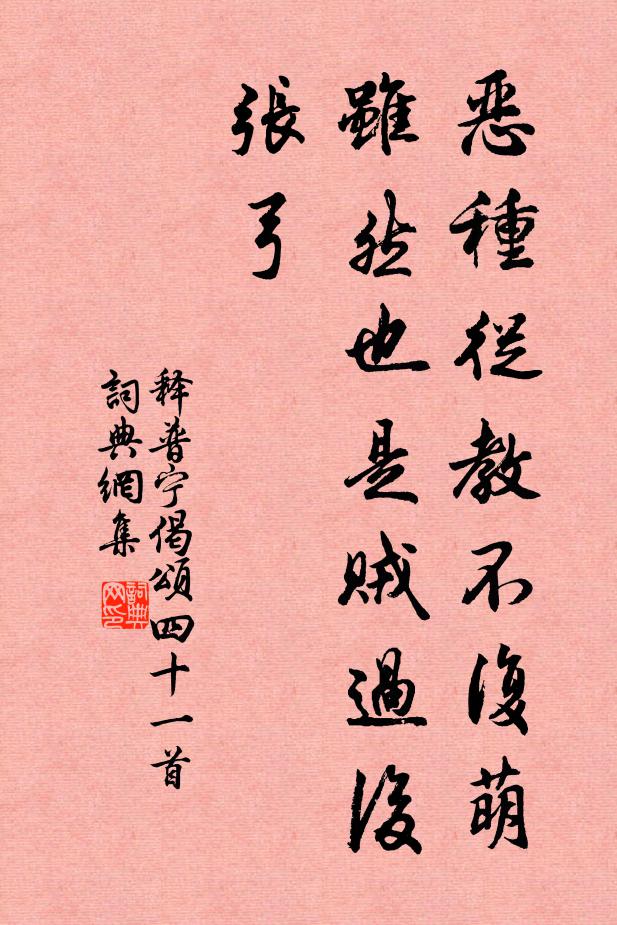 恶種從教不復萌
雖然也是賊過後
張弓
释普宁偈頌四十一首
詞典網集
詞典網印